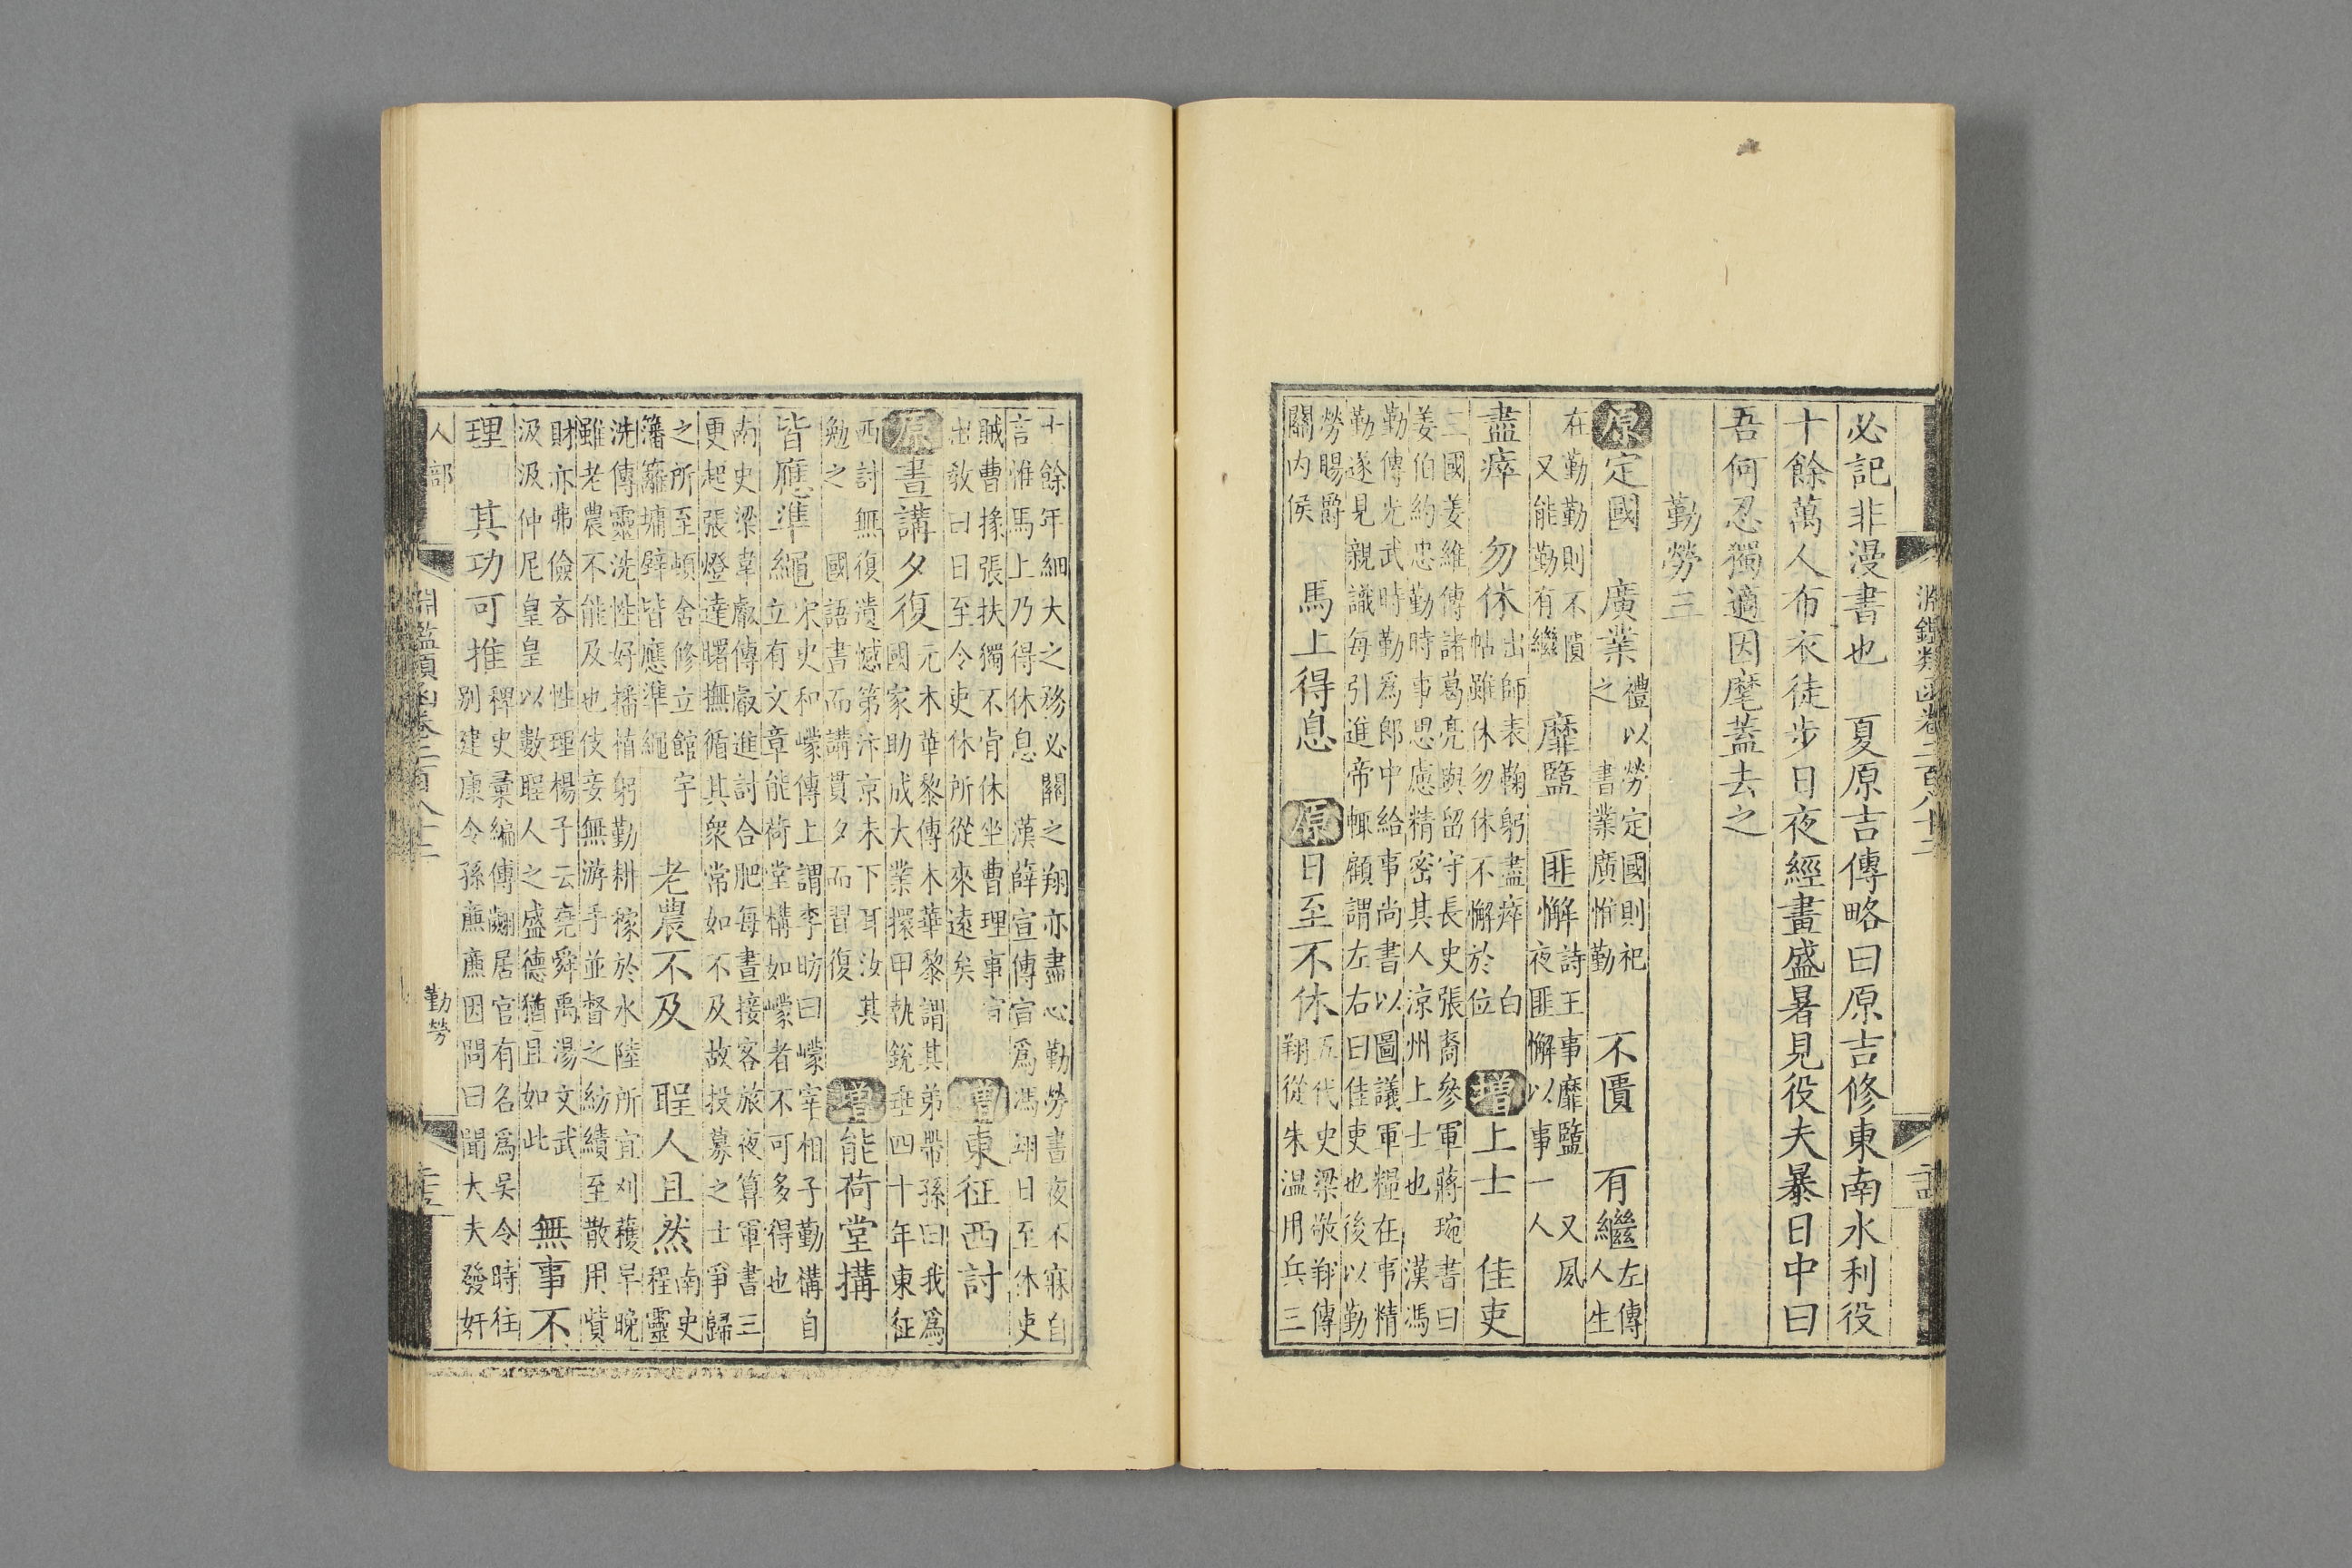 淵鑑類函卷二百八十二
必記非漫書也　夏原吉傳略曰原吉修東南水利役
十餘萬人布衣徒步日夜經畫盛暑見役夫暴日中曰
吾何忍獨適因麾蓋去之
勤勞三
原定國　廣業　禮以勞定國則祀
之　書業廣惟勤　不匱　有繼　左傳
人生
在勤勤則不匱
又能勤有繼　靡盬　匪懈　詩王事靡盬　又夙
夜匪懈以事一人
盡瘁　勿休　出師表鞠躬盡瘁　白
帖雖休勿休不懈於位　增上士　佳吏
三國姜維傳諸葛亮與留守長史張裔參軍蔣琬書曰
姜伯約忠勤時事思慮精密其人涼州上士也　漢馮
勤傳光武時勤爲郎中給事尚書以圖議軍糧在事精
勤遂見親識每引進帝輒顧謂左右曰佳吏也後以勤
勞賜爵
關内侯　馬上得息　原日至不休　五代史梁敬翔傳
翔從朱温用兵三
十餘年細大之務必關之翔亦盡心勤勞晝夜不寐自
言惟馬上乃得休息　漢薛宣傳宣爲馮翊日至休吏
賊曹掾張扶獨不肯休坐曹理事宣
出教曰日至令吏休所從來遠矣　增東征西討
原晝講夕復　元木華黎傳木華黎謂其弟帶孫曰我爲
國家助成大業擐甲執銳垂四十年東征
西討無復遺憾第汴京未下耳汝其
勉之　國語晝而講貫夕而習復　增能荷堂搆
皆應準繩　宋史和㠓傳上謂李昉曰㠓宰相子勤搆自
立有文章能荷堂構如㠓者不可多得也
南史梁韋叡傳叡進討合肥每晝接客旅夜算軍書三
更起張燈達曙撫循其衆常如不及故投募之士爭歸
之所至頓舍修立館宇
藩籬墉壁皆應準繩　老農不及　聖人且然　南史
程靈
洗傳靈洗性好播植躬勤耕稼於水陸所宜刈穫早晚
雖老農不能及也伎妾無游手並督之紡績至散用貲
財亦弗儉吝　性理楊子云堯舜禹湯文武
汲汲仲尼皇皇以數聖人之盛德猶且如此　無事不
理　其功可推　稗史彙編傅翽居官有名爲吳令時往
別建康令孫廉廉因問曰聞大夫發奸
人部　淵鑑類函卷二百八十二　勤勞